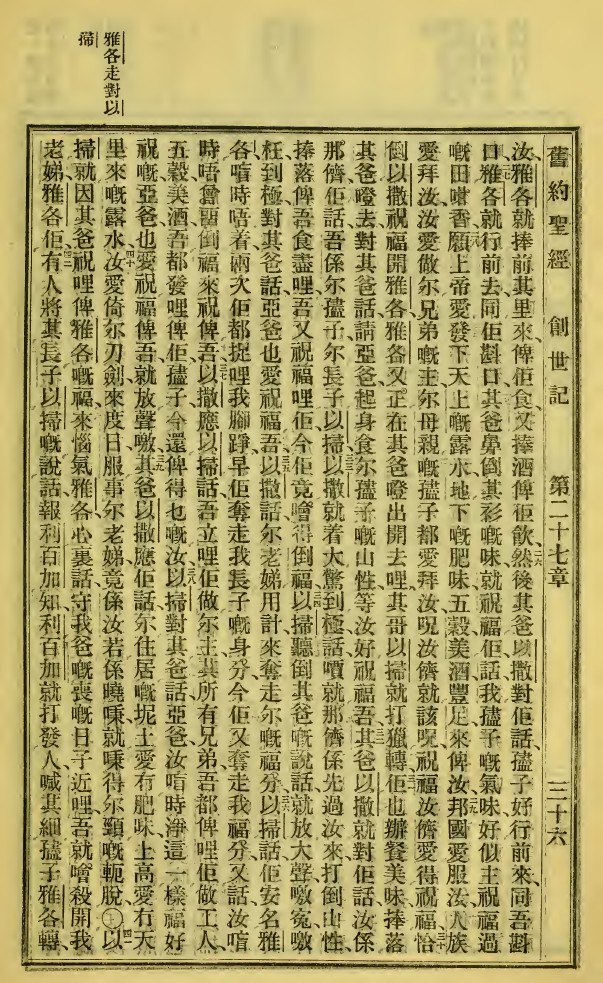 舊約聖經 創世記 第二十七章 三十六
汝雅各就捧前其里來俾佢食又捧酒俾佢飲然後其爸以撒對佢話孻子好行前來同吾斟
口雅各就行前去同佢斟口其爸鼻倒其衫嘅味就祝福佢話我孻子嘅氣味好似主祝福過
嘅田啫香願上帝愛發下天上嘅露水地下嘅肥味五穀美酒豐足來俾汝邦國愛服汝人族
愛拜汝汝愛做尔兄弟嘅主尔母親嘅孻子都愛拜汝呪汝儕就該呪祝福汝儕愛得祝福恰
倒以撒祝福開雅各雅各又正在其爸瞪出開去哩其哥以掃就打獵轉佢也辦餐美味捧落
其爸瞪去對其爸話請亞爸起身食尔孻子嘅山性等汝好祝福吾其爸以撒就對佢話汝係
那儕佢話吾係尔孻子尔長子以掃以撒就着大驚到極話嘖就那儕係先過汝來打倒山性
捧落俾吾食盡哩吾又祝福哩佢今佢竟噲得倒福以掃聽倒其爸嘅說話就放大聲噭寃噭
枉到極對其爸話亞爸也愛祝福吾以撒話尔老娣用計來奪走尔嘅福分以掃話佢安名雅
各喑時唔着兩次佢都捉哩我腳踭早佢奪走我長子嘅身分今佢又奪走我福分又話汝喑
時唔曾畱倒福來祝俾吾以撒應以掃話吾立哩佢做尔主其所有兄弟吾都俾哩佢做工人
五穀美酒吾都發哩俾佢孻子今還俾得乜嘅汝以掃對其爸話亞爸汝喑時淨這一樣福好
祝嘅亞爸也愛祝福俾吾就放聲噭其爸以撒應佢話尔住居嘅坭土愛冇肥味上高愛冇天
里來嘅露水汝愛倚尔刀劍來度日服事尔老娣竟係汝若係曉𢳆就𢳆得尔頸嘅軛脫以
掃就因其爸祝哩俾雅各嘅福來惱氣雅各心裏話守我爸嘅喪嘅日子近哩吾就噲殺開我
老娣雅各佢有人將其長子以掃嘅說話報利百加知利百加就打發人喊其細孻子雅各轉
雅各走對以
掃